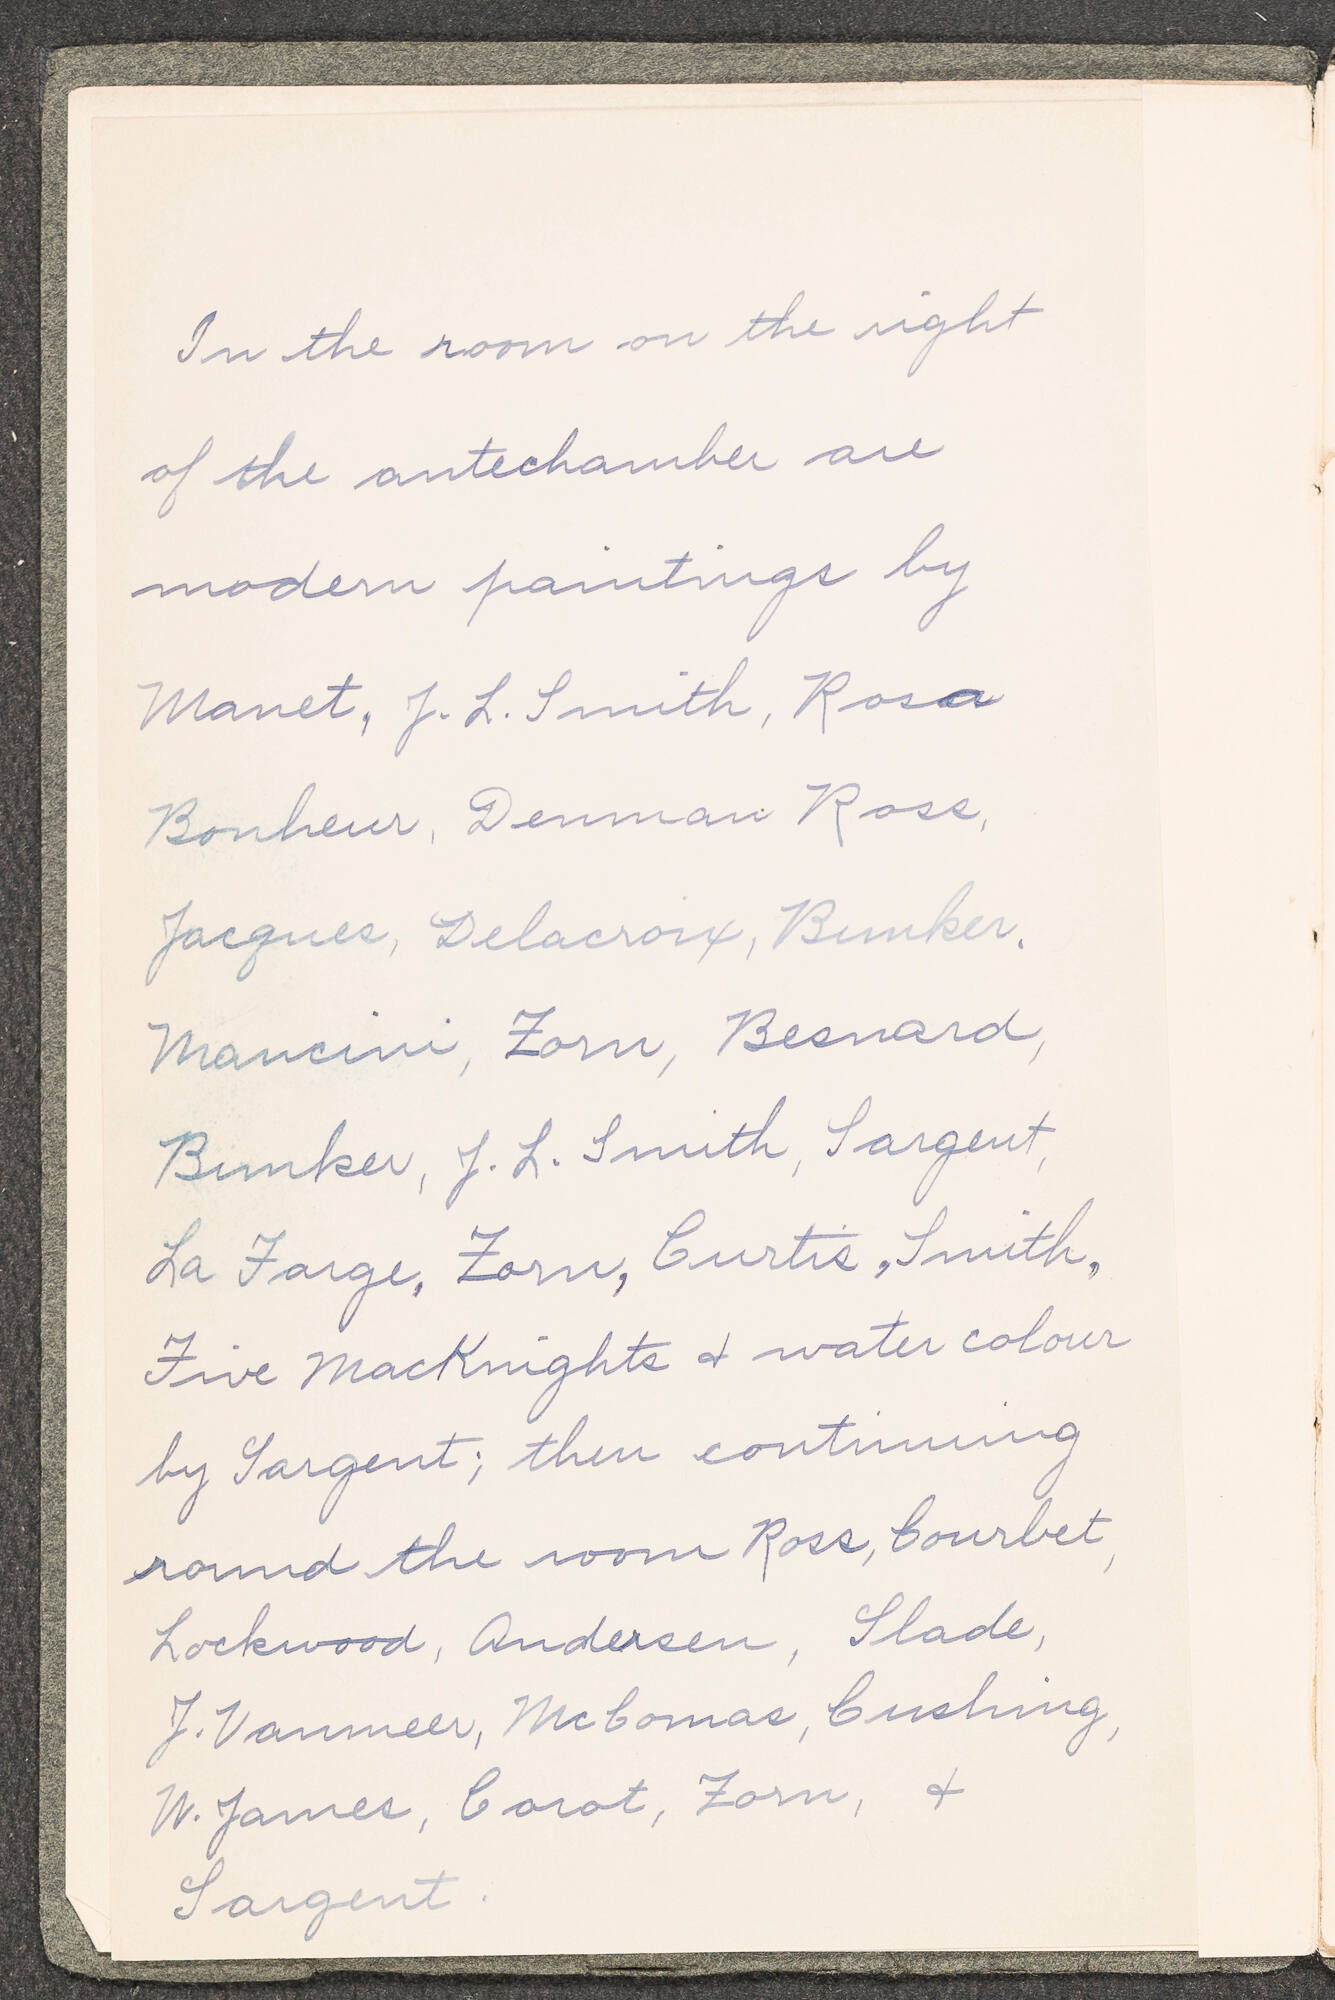 In the room on the right
of the antechamber are
modern paintings by
Manet, J. L. Smith, Rosa
Bonheur, Denman Ross,
Jacques, Delacroix, Bunker,
Mancini, Zorn, Besnard,
Bunker, J. L. Smith, Sargent,
La Farge, Zorn, Curtis, Smith,
Five MacKnights & water colour
by Sargent; then continuing
round the room Ross, Courbet,
Lockwood, Andersen, Slade,
J. Vanmeer, McComas, Cushing,
W. James, Corot, Zorn, &
Sargent.